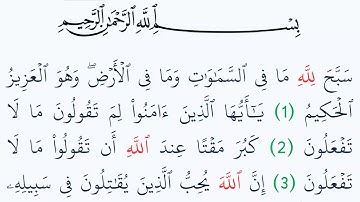 بِسْمِ ٱللَّهِ ٱلرَّحْمَٰنِ ٱلرَّحِيمِ
سَبَّحَ لِلَّهِ مَا فِى ٱلسَّمَٰوَٰتِ وَمَا فِى ٱلْأَرْضِ ۖ وَهُوَ ٱلْعَزِيزُ
ٱلْحَكِيمُ (1) يَٰٓأَيُّهَا ٱلَّذِينَ ءَامَنُوا۟ لِمَ تَقُولُونَ مَا لَا
تَفْعَلُونَ (2) كَبُرَ مَقْتًا عِندَ ٱللَّهِ أَن تَقُولُوا۟ مَا لَا
تَفْعَلُونَ (3) إِنَّ ٱللَّهَ يُحِبُّ ٱلَّذِينَ يُقَٰتِلُونَ فِى سَبِيلِهِۦ